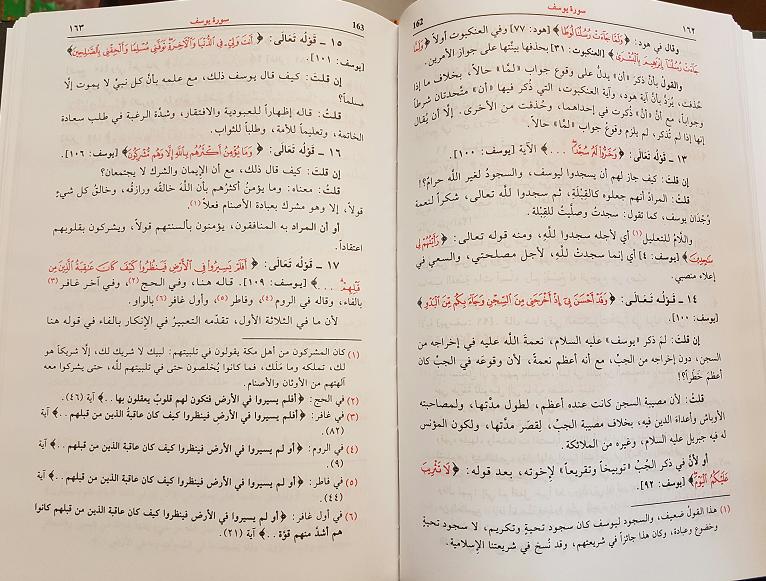 ١٦٢
سورة يوسف
162
وقال في هود: ﴿وَلَمَّا جَاءَتْ رُسُلُنَا لُوطاً﴾ [هود: 77] وفي العنكبوت أولاً ﴿وَلَمَّا
جَاءَتْ رُسُلُنَا إِبْرَاهِيمَ بِالْبُشْرَى﴾ [العنكبوت: ٣١] بحذفها بينها على جواز الأمرين.
والقول بأن ذكر «أن» يدلُّ على وقوع جواب «لمّا» حالاً، بخلاف ما إذا
حُذفت، يُردُّ بأن آية هود، وآية العنكبوت، التي ذُكر فيها «أن» متَّحدتان شرطاً
وجواباً، مع أنَّ «أنْ» ذُكرت في إحداهما، وحُذفت من الأخرى. إلا أن يُقال
إنها إذا لم تُذكر، لم يلزم وقوعُ جواب «لمّا» حالاً.
١٣ ـ قوْله تعَالى: ﴿وَخَرُّوا لَهُ سُجَّداً . .﴾ الآية [يوسف: ١٠٠].
إن قلت: كيف جاز لهم أن يسجدوا ليوسف، والسجودُ لغير الله حرامٌ؟!
قلتُ: المرادُ أنهم جعلوه كالقبْلة، ثم سجدوا لله تعالى، شكراً لنعمة
وُجْدَان يوسف، كما تقول: سجدتُ وصلَّيتُ للقِبْلة.
واللَّامُ للتعليل(١) أي لأجله سجدوا للَّهِ، ومنه قوله تعالى: ﴿رَأَيْتُهُمْ لِي
سَاجِدِينَ﴾ [يوسف: ٤] أي إنما سجدتُ للهِ، لأجل مصلحتي، والسعي في
إعلاء منصبي.
١٤ ـ قوْله تعَالى: ﴿وَقَدْ أَحْسَنَ بِي إِذْ أَخْرَجَنِي مِنَ السِّجْنِ وَجَاءَ بِكُمْ مِنَ الْبَدْوِ﴾
[يوسف: ١٠٠].
إن قلتَ: لمَ ذكر «يوسف» عليه السلام، نعمةَ اللَّه عليه في إخراجه من
السجن، دون إخراجه من الجبِّ، مع أنه أعظم نعمةً، لأن وقوعَه في الجبِّ كان
أعظمَ خَطَراً؟!
قلتُ: لأن مصيبة السجن كانت عنده أعظم، لطول مدَّتها، ولمصاحبته
الأوباش وأعداءَ الدين فيه، بخلاف مصيبة الجبِّ، لِقِصَر مدَّتها، ولكون المؤنس
له فيه جبريل عليه السلام، وغيره من الملائكة.
أو لأنَّ في ذكر الجُبِّ «توبيخاً وتقريعاً» لإخوته، بعد قوله: ﴿لَا تَثْرِيبَ
عَلَيْكُمُ الْيَوْمَ﴾ [يوسف: ٩٢].
(١) هذا القولُ ضعيف، والسجود ليوسف كان سجود تحيةٍ وتكريم، لا سجود تحيةٍ
وخضوع وعبادة، وكان هذا جائزاً في شريعتهم، وقد نُسخ في شريعتنا الإسلامية.
163
سورة يوسف
١٦٣
١٥ ـ قوْله تعَالى: ﴿أَنْتَ وَلِيِّي فِي الدُّنْيَا وَالْآخِرَةِ تَوَفَّنِي مُسْلِماً وَأَلْحِقْنِي بِالصَّالِحِينَ﴾
[يوسف: ١٠١].
إن قلتَ: كيف قال يوسف ذلك، مع علمه بأنَّ كل نبيٍّ لا يموت إلّا
مسلماً؟
قلتُ: قاله إظهاراً للعبودية والافتقار، وشدَّة الرغبة في طلب سعادة
الخاتمة، وتعليماً للأمة، وطلباً للثواب.
١٦ ـ قوْله تعَالى: ﴿وَمَا يُؤْمِنُ أَكْثَرُهُمْ بِاللَّهِ إِلَّا وَهُمْ مُشْرِكُونَ﴾ [يوسف: ١٠٦].
إن قلت: كيف قال ذلك، مع أن الإيمان والشرك لا يجتمعان؟
قلتُ: معناه: وما يؤمنُ أكثرُهم بأن اللَّهَ خالقُه ورازقُه، وخالقُ كل شيءٍ
قولاً، إلا وهو مشرك بعبادة الأصنام فعلاً(١)
أو أن المراد به المنافقون، يؤمنون بألسنتهم قولاً، ويشركون بقلوبهم
اعتقاداً.
١٧ ـ قوْله تعَالى: ﴿أَفَلَمْ يَسِيرُوا فِي الْأَرْضِ فَيَنْظُرُوا كَيْفَ كَانَ عَاقِبَةُ الَّذِينَ مِنْ
قَبْلِهِمْ . . .﴾ [يوسف: ١٠٩]. قاله هنا، وفي الحج(٢)، وفي آخر غافر(٣)
بالفاء، وقاله في الروم(٤)، وفاطر(٥)، وأول غافر(٦) بالواو.
لأن ما في الثلاثة الأول، تقدَّمه التعبيرُ في الإنكار بالفاء في قوله هنا
(١) كان المشركون من أهل مكة يقولون في تلبيتهم: لبيك لا شريك لك، إلَّا شريكاً هو
لك، تملكه وما مَلَك، فما كانوا يُخلصون حتى في تلبيتهم للَّه، حتى يشركوا معه
آلهتهم من الأوثان والأصنام.
(٢) في الحج: ﴿أفلم يسيروا في الأرض فتكون لهم قلوبٌ يعقلون بها . .﴾ آية (٤٦).
(٣) في غافر: ﴿أفلم يسيروا في الأرضِ فينظروا كيف كان عاقبةُ الذين من قبلهم . .﴾ آية
(٨٢).
(٤) في الروم: ﴿أو لم يسيروا في الأرض فينظروا كيف كان عاقبة الذين من قبلهم . .﴾ آية
(٩).
(٥) في فاطر: ﴿أو لم يسيروا في الأرض فينظروا كيف كان عاقبة الذين من قبلهم . .﴾ آية
(٤٤).
(٦) في أول غافر: ﴿أو لم يسيروا في الأرض فينظروا كيف كان عاقبة الذين من قبلهم كانوا
هم أشدَّ منهم قوّة . .﴾ آية (٢١).